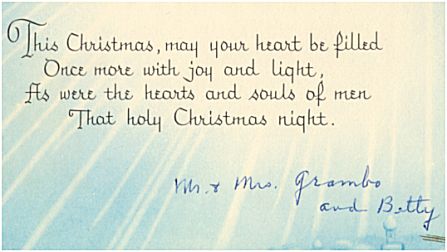 This Christmas, may your heart be filled
Once more with joy and light,
As were the hearts and souls of men
That holy Christmas night.
Mr. & Mrs. Grambo
and Betty